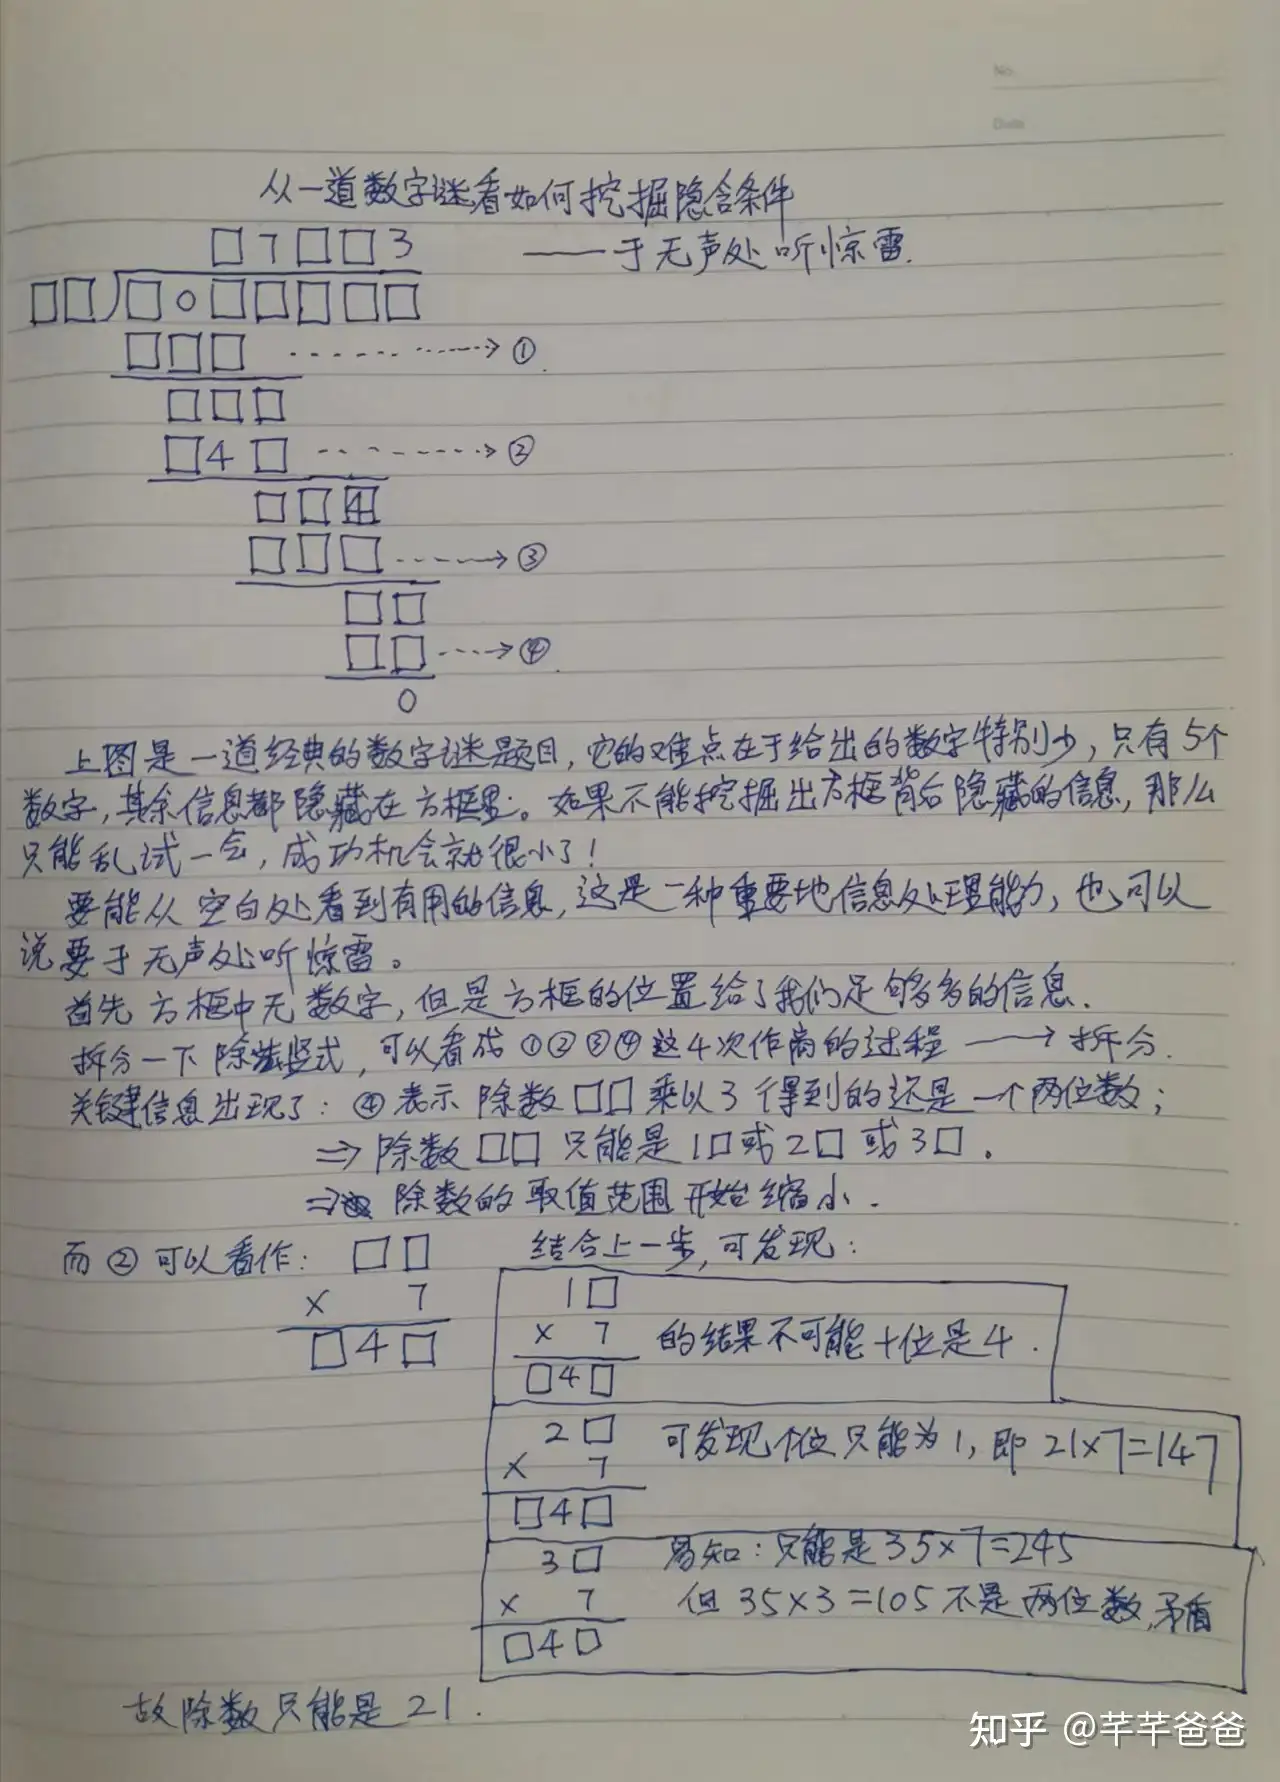 No.
Date
从一道数字谜看如何挖掘隐含条件
——于无声处听惊雷.
□7□□3
□□)□0□□□□□
□□□ ------→①
□□□
□4□ ------→②
□□4
□□□ ------→③
□□
□□ ----→④
0
上图是一道经典的数字谜题目,它的难点在于给出的数字特别少,只有5个
数字,其余信息都隐藏在方框里。如果不能挖掘出方框背后隐藏的信息,那么
只能乱试一会,成功机会就很小了!
要能从空白处看到有用的信息,这是一种重要地信息处理能力,也可以
说要于无声处听惊雷。
首先方框中无数字,但是方框的位置给了我们足够多的信息.
拆分一下除法竖式,可以看成①②③④这4次作商的过程 ——→拆分.
关键信息出现了:④表示除数□□乘以3得到的还是一个两位数;
⇒除数□□只能是1□或2□或3□.
⇒除数的取值范围开始缩小.
而②可以看作: □□
× 7
□4□
结合上一步,可发现:
1□
× 7
□4□
的结果不可能十位是4.
2□
× 7
□4□
可发现个位只能为1,即21×7=147
3□
× 7
□4□
易知:只能是35×7=245
但35×3=105不是两位数,矛盾
故除数只能是21.
知乎 @芊芊爸爸